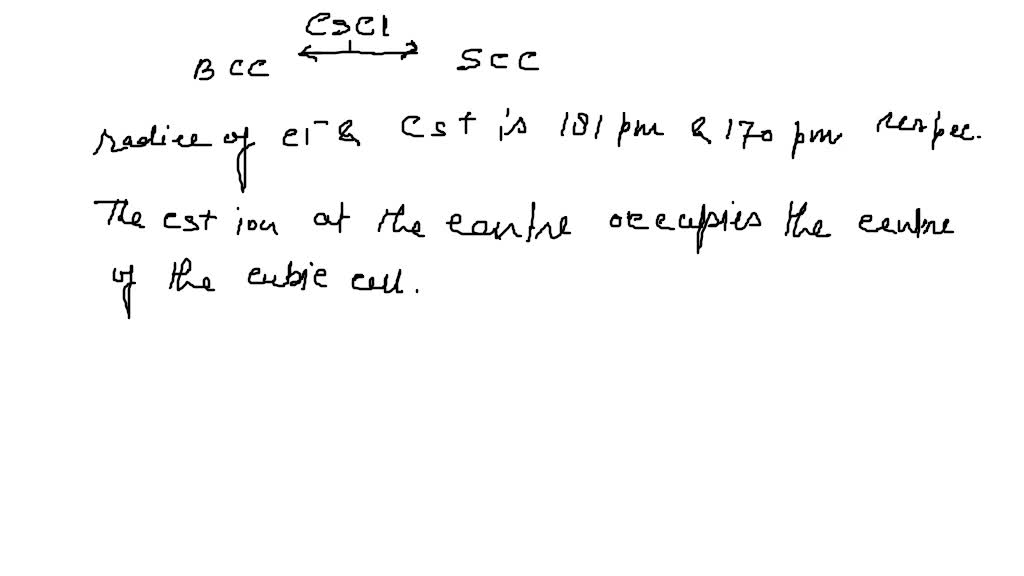 CsCl
BCC SCC
radice of Cl- & Cs+ is 181 pm & 170 pm respec.
The Cs+ ion at the centre occupies the centre
of the cubic cell.